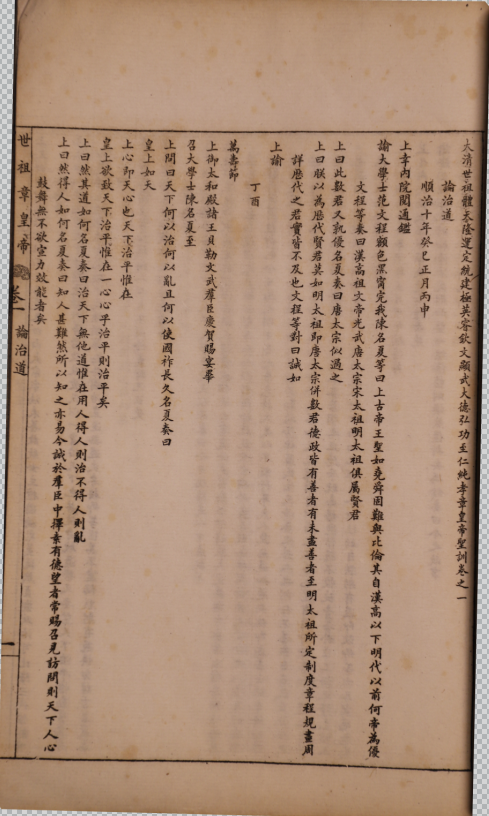 大清世祖體天隆運定統建極英睿欽文顯武大德弘功至仁純孝章皇帝聖訓卷之一
論治道
順治十年癸巳正月丙申
上幸內院閱通鑑
諭大學士范文程額色黑甯完我陳名夏等曰上古帝王聖如堯舜固難與比倫其自漢高以下明代以前何帝為優
文程等奏曰漢高祖文帝光武唐太宗宋太祖明太祖俱屬賢君
上曰此數君又孰優名夏奏曰唐太宗似過之
上曰朕以為歷代賢君莫如明太祖即唐太宗併數君德政皆有善者有未盡善者至明太祖所定制度章程規畫周
詳歷代之君實皆不及也文程等對曰誠如
上諭
丁酉
萬壽節
上御太和殿諸王貝勒文武羣臣慶賀賜宴畢
召大學士陳名夏至
上問曰天下何以治何以亂且何以使國祚長久名夏奏曰
皇上如天
上心即天心也天下治平惟在
皇上欲致天下治平惟在一心心乎治平則治平矣
上曰然其道如何名夏奏曰治天下無他道惟在用人得人則治不得人則亂
上曰然得人如何名夏奏曰知人甚難然所以知之亦易今誠於羣臣中擇素有德望者常賜召見訪問則天下人心
鼓舞無不欲宣力效能者矣
世祖章皇帝
卷一
論治道
一